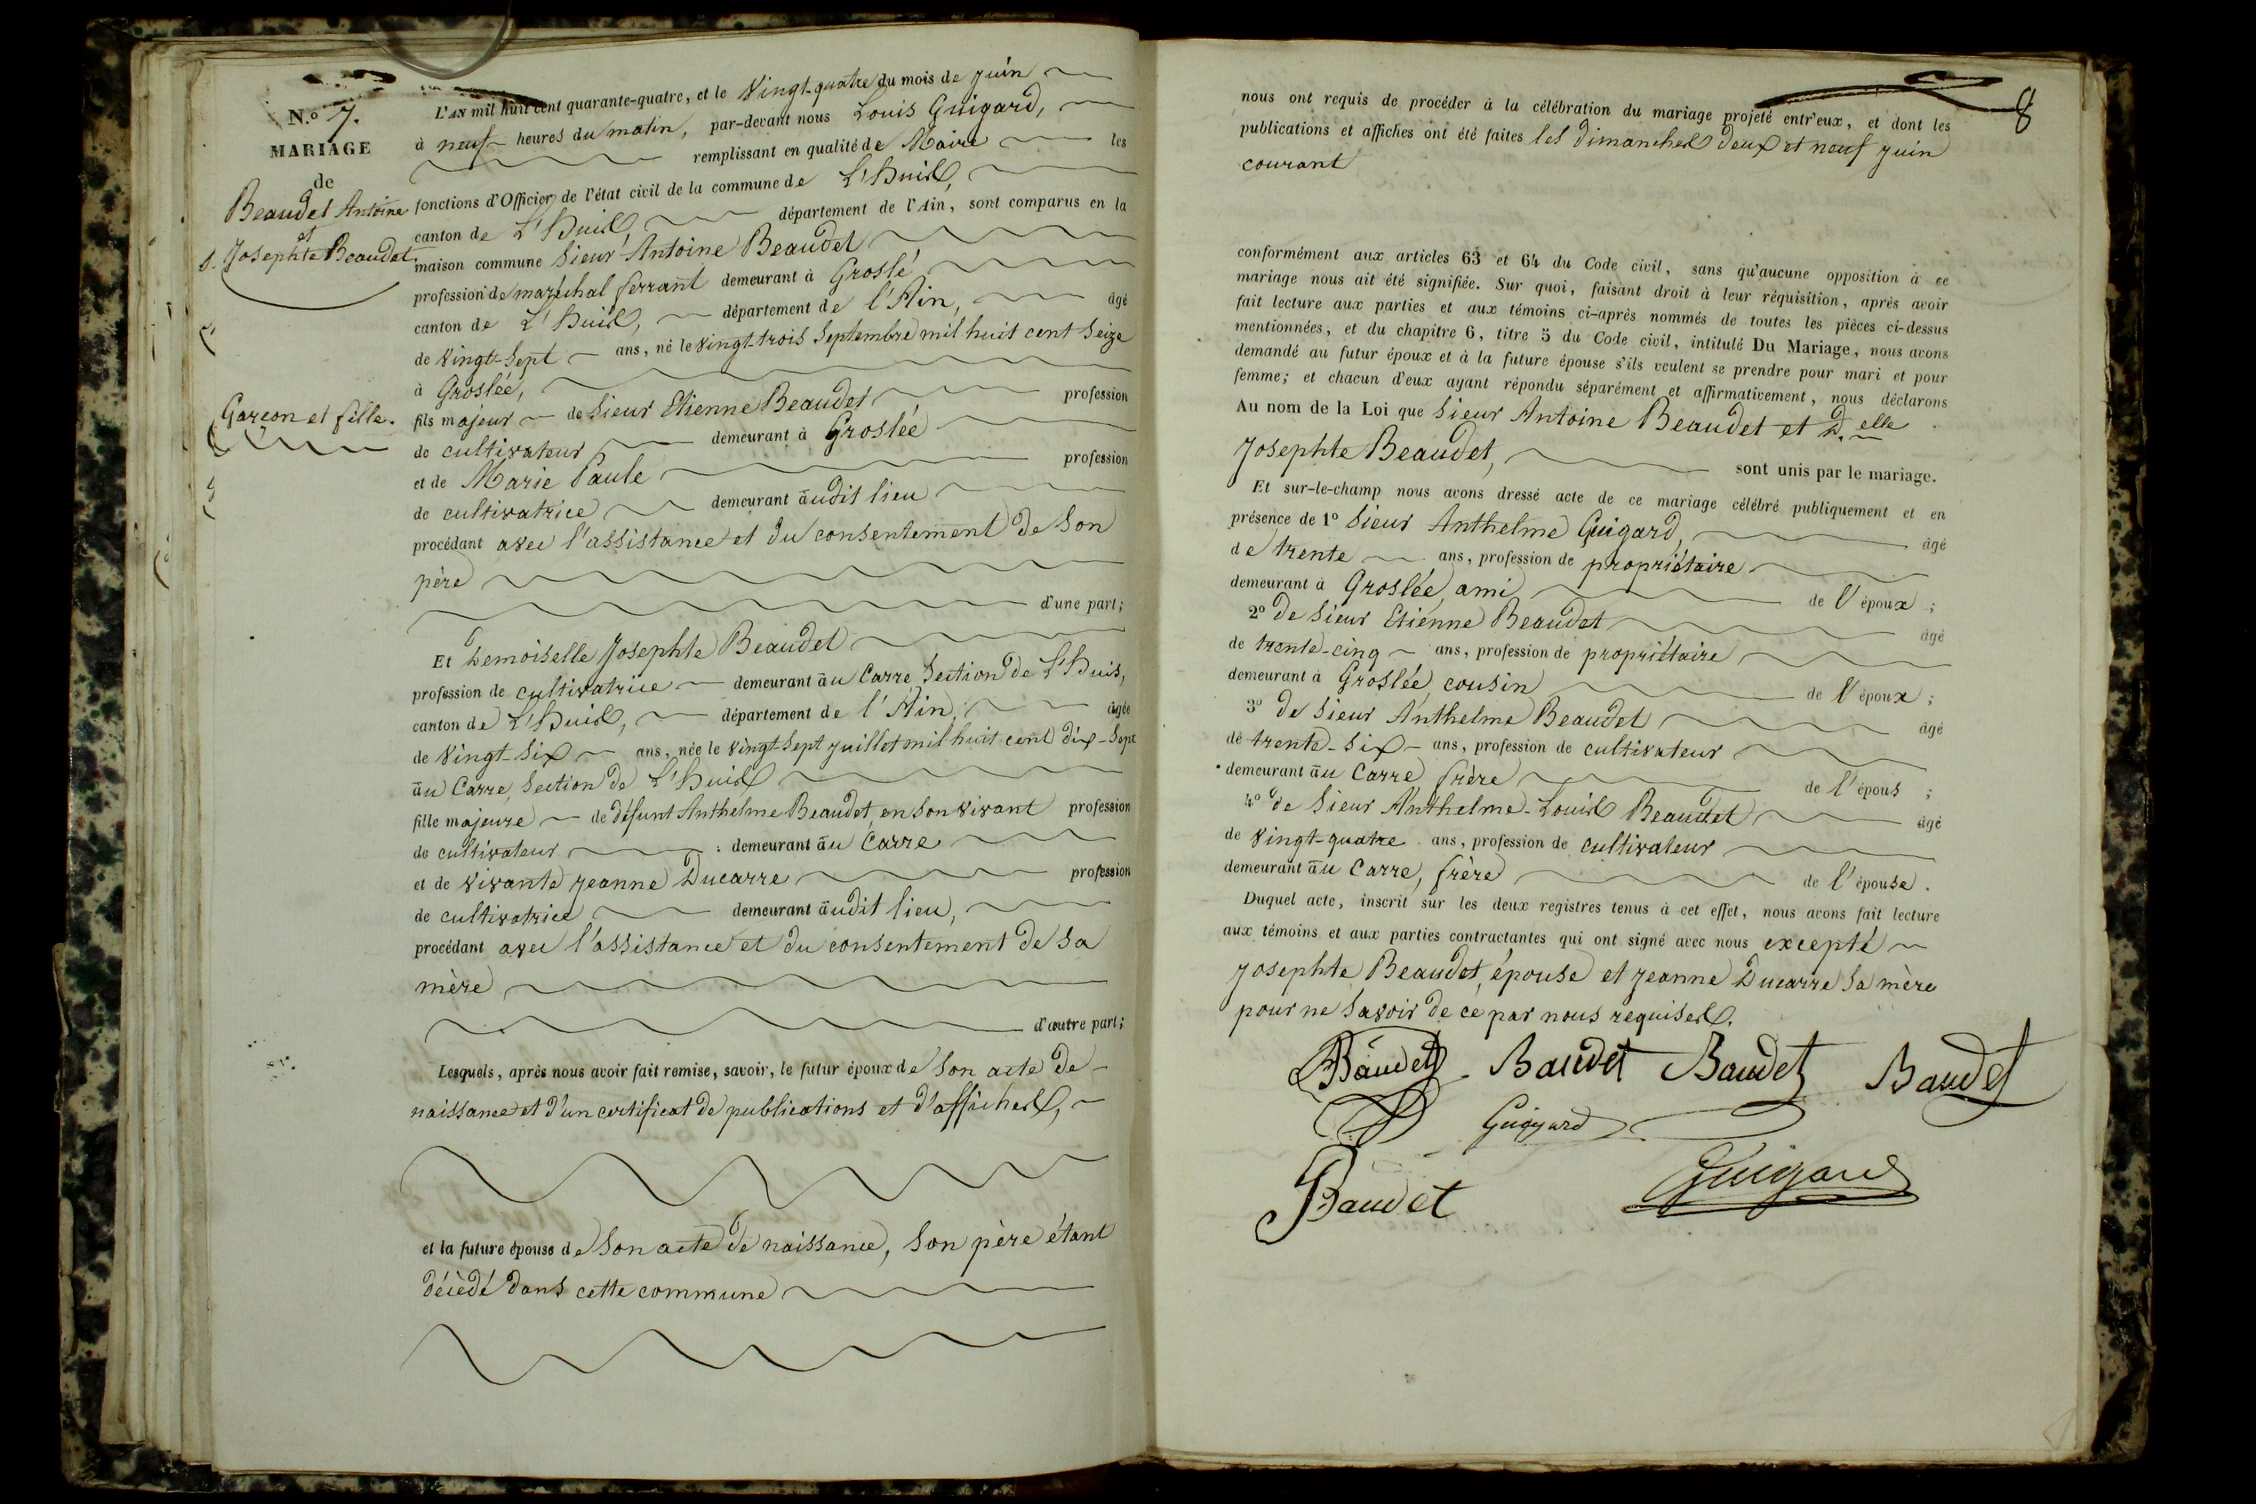 N.o 7.
MARIAGE
de
Beaudet Antoine
et
Josephte Beaudet
Garçon et fille.
L'AN mil huit cent quarante-quatre, et le vingt-quatre du mois de juin
à neuf heures du matin, par-devant nous Louis Guigard,
remplissant en qualité de Maire les
fonctions d'Officier de l'état civil de la commune de L'huis,
canton de L'huis, département de l'Ain, sont comparus en la
maison commune Sieur Antoine Beaudet
profession de maréchal ferrant demeurant à Groslé
canton de L'huis, département de l'Ain, âgé
de vingt-sept ans, né le vingt-trois septembre mil huit cent seize
à Groslée,
fils majeur de sieur Etienne Beaudet profession
de cultivateur demeurant à Groslée
et de Marie Paule profession
de cultivatrice demeurant audit lieu
procédant avec l'assistance et du consentement de son
père
d'une part;
Et Demoiselle Josephte Beaudet
profession de cultivatrice demeurant au Carre Section de L'huis,
canton de L'huis, département de l'Ain, âgée
de vingt-six ans, née le vingt-sept juillet mil huit cent dix-sept
au Carre, Section de L'huis
fille majeure de défunt Anthelme Beaudet, en son vivant profession
de cultivateur demeurant au Carre
et de vivante jeanne Ducarre profession
de cultivatrice demeurant audit lieu,
procédant avec l'assistance et du consentement de sa
mère
d'autre part;
Lesquels, après nous avoir fait remise, savoir, le futur époux de son acte de
naissance et d'un certificat de publications et d'affiches,
et la future épouse de son acte de naissance, son père étant
décédé dans cette commune
8
nous ont requis de procéder à la célébration du mariage projeté entr'eux, et dont les
publications et affiches ont été faites les dimanches deux et neuf juin
courant
conformément aux articles 63 et 64 du Code civil, sans qu'aucune opposition à ce
mariage nous ait été signifiée. Sur quoi, faisant droit à leur réquisition, après avoir
fait lecture aux parties et aux témoins ci-après nommés de toutes les pièces ci-dessus
mentionnées, et du chapitre 6, titre 5 du Code civil, intitulé Du Mariage, nous avons
demandé au futur époux et à la future épouse s'ils veulent se prendre pour mari et pour
femme; et chacun d'eux ayant répondu séparément et affirmativement, nous déclarons
Au nom de la Loi que Sieur Antoine Beaudet et D.elle
Josephte Beaudet, sont unis par le mariage.
Et sur-le-champ nous avons dressé acte de ce mariage célébré publiquement et en
présence de 1o Sieur Anthelme Guigard, âgé
de trente ans, profession de propriétaire
demeurant à Groslée, ami de l'époux ;
2o de Sieur Etienne Beaudet âgé
de trente-cinq ans, profession de propriétaire
demeurant à Groslée, cousin de l'époux ;
3o de Sieur Anthelme Beaudet âgé
de trente-six ans, profession de cultivateur
demeurant au Carre frère de l'épous ;
4o de Sieur Anthelme-Louis Beaudet âgé
de vingt-quatre ans, profession de cultivateur
demeurant au Carre, frère de l'épouse.
Duquel acte, inscrit sur les deux registres tenus à cet effet, nous avons fait lecture
aux témoins et aux parties contractantes qui ont signé avec nous excepté
Josephte Beaudet, épouse et jeanne Ducarre sa mère
pour ne savoir de ce par nous requises.
Baudet Baudet Baudet Baudet
Guigard
Baudet Guigard